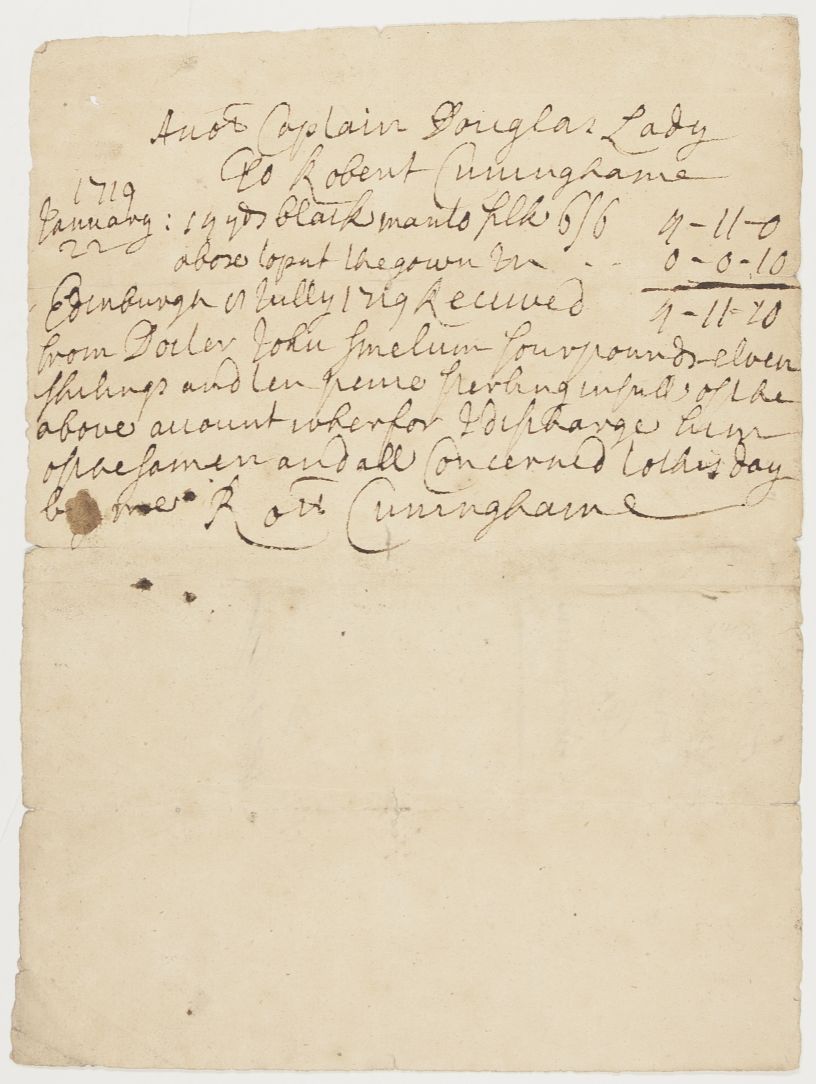 Accot Captain Douglas Lady
To Robert Cuninghame
1719
January : 14 yds black manto silk 6/6 4-11-0
22 abox to put the gown In - - 0-0-10
Edinburgh Jully 1719 Received 4-11-10
from Docter John four pounds elven
shilings and ten penie sterling in full of the
above account wherfor I discharge him
of the samen and all Concerned to this day
by me Rott Cuninghame